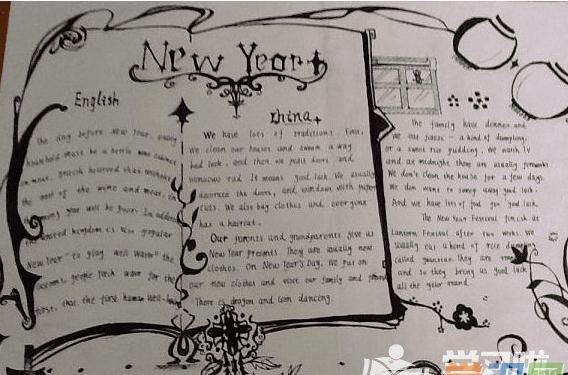 New Year
English
The day before New Year, every
household must be a bottle wine cabinet
in meat. British believed that without
the rest of the wine and meat, in
year will be poor. In addition
united kingdom is also popular
New Year "to play well water" the
people for the
first, that the first human well-
China
We have lots of traditions. First,
we clean our houses and sweep a way
bad luck. and then we paint doors and
windows red. It means good luck. We usually
decorate the doors, and windows with paper
cuts. We also buy clothes and everyone
has a haircut.
Our parents and grandparents give us
New Year presents. They are usually new
clothes. On New Year's Day, we put on
our new clothes and visit our family and
There is dragon and lion dancing.
The family have dinner and
we eat jiaozi - a kind of dumpling
or a sweet rice pudding. We watch TV
and at midnight there are usually fireworks
We don't clean the house for a few days.
We don want to sweep away good luck.
And we have lots of food for good luck.
The New Year Festival finish at
Lantern Festival after two weeks. We
usually eat a kind of rice dumpling
called yuanxiao. They are
and so they bring us good luck
all the year round.